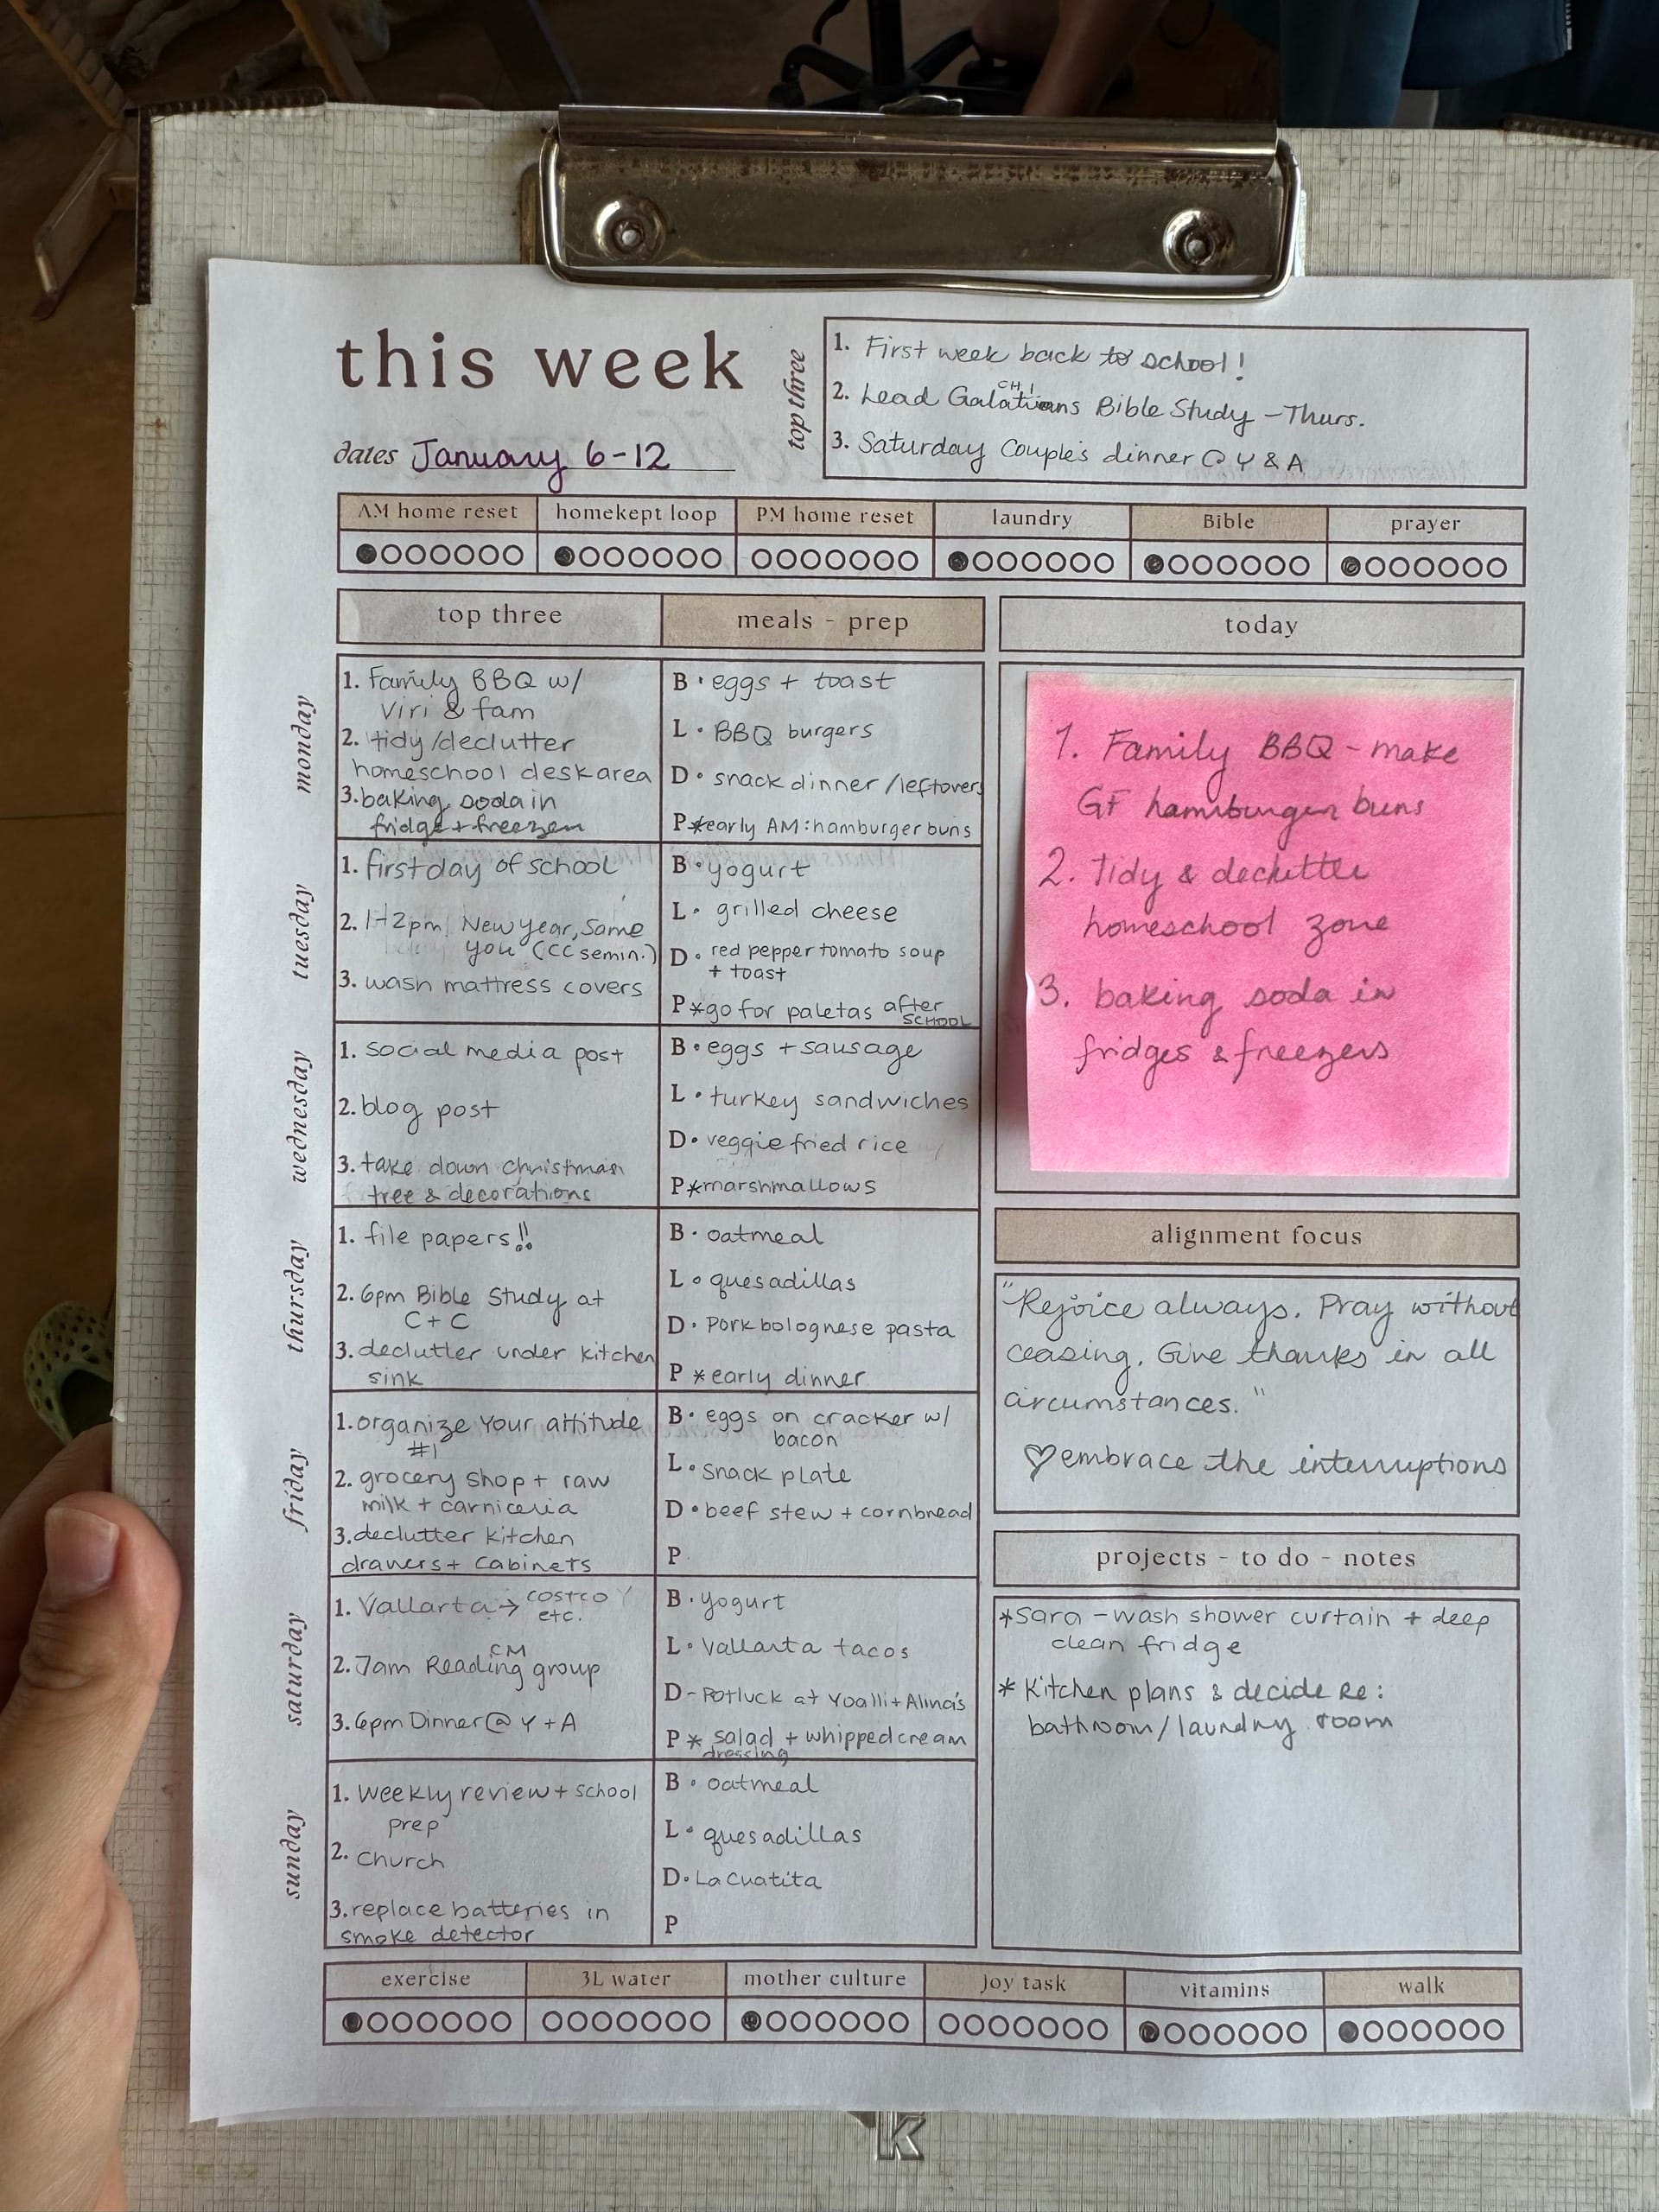 this week
dates January 6-12
top three
1. First week back to school!
CH 1
2. Lead Galatians Bible Study - Thurs.
3. Saturday Couples dinner @ Y & A
AM home reset
homekept loop
PM home reset
laundry
Bible
prayer
top three
meals - prep
today
monday
1. Family BBQ w/
Viri & fam
2. tidy/declutter
homeschool desk area
3. baking soda in
fridge + freezer
B • eggs + toast
L • BBQ burgers
D • snack dinner/leftovers
P * early AM: hamburger buns
tuesday
1. first day of school
2. 1-2pm New Year, Same
you (CC semin.)
3. wash mattress covers
B • yogurt
L • grilled cheese
D • red pepper tomato soup
+ toast
P * go for paletas after
SCHOOL
wednesday
1. social media post
2. blog post
3. take down christmas
tree & decorations
B • eggs + sausage
L • turkey sandwiches
D • veggie fried rice
P * marshmallows
thursday
1. file papers!!
2. 6pm Bible Study at
C + C
3. declutter under kitchen
sink
B • oatmeal
L • quesadillas
D • Pork bolognese pasta
P * early dinner
friday
1. organize your attitude
#1
2. grocery shop + raw
milk + carniceria
3. declutter kitchen
drawers + cabinets
B • eggs on cracker w/
bacon
L • snack plate
D • beef stew + cornbread
P
saturday
1. Vallarta → costco
etc.
CM
2. 7am Reading group
3. 6pm Dinner @ Y + A
B • Yogurt
L • Vallarta tacos
D - Potluck at Yoalli + Alina's
P * salad + whipped cream
dressing
sunday
1. Weekly review + school
prep
2. Church
3. replace batteries in
smoke detector
B • oatmeal
L • quesadillas
D • La Cuatita
P
1. Family BBQ - make
GF hamburger buns
2. Tidy & declutter
homeschool zone
3. baking soda in
fridges & freezers
alignment focus
"Rejoice always. Pray without
ceasing. Give thanks in all
circumstances."
♡ embrace the interruptions
projects - to do - notes
* Sara - wash shower curtain + deep
clean fridge
* Kitchen plans & decide Re:
bathroom/laundry room
exercise
3L water
mother culture
joy task
vitamins
walk
k